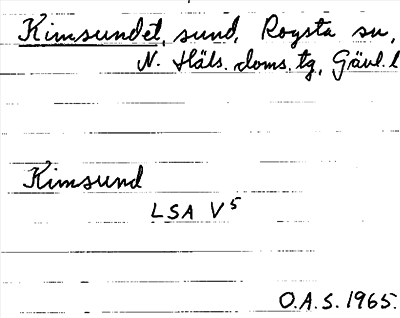 Kimsundet, sund, Rogsta sn,
N. Häls. doms. tg, Gävl. l
Kimsund
LSA V⁵
O.A.S. 1965.